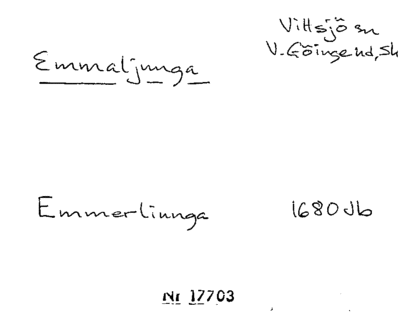 Vittsjö sn
V. Göinge hd, Sk
Emmaljunga
Emmerliunga 1680 Jb
Nr 17703